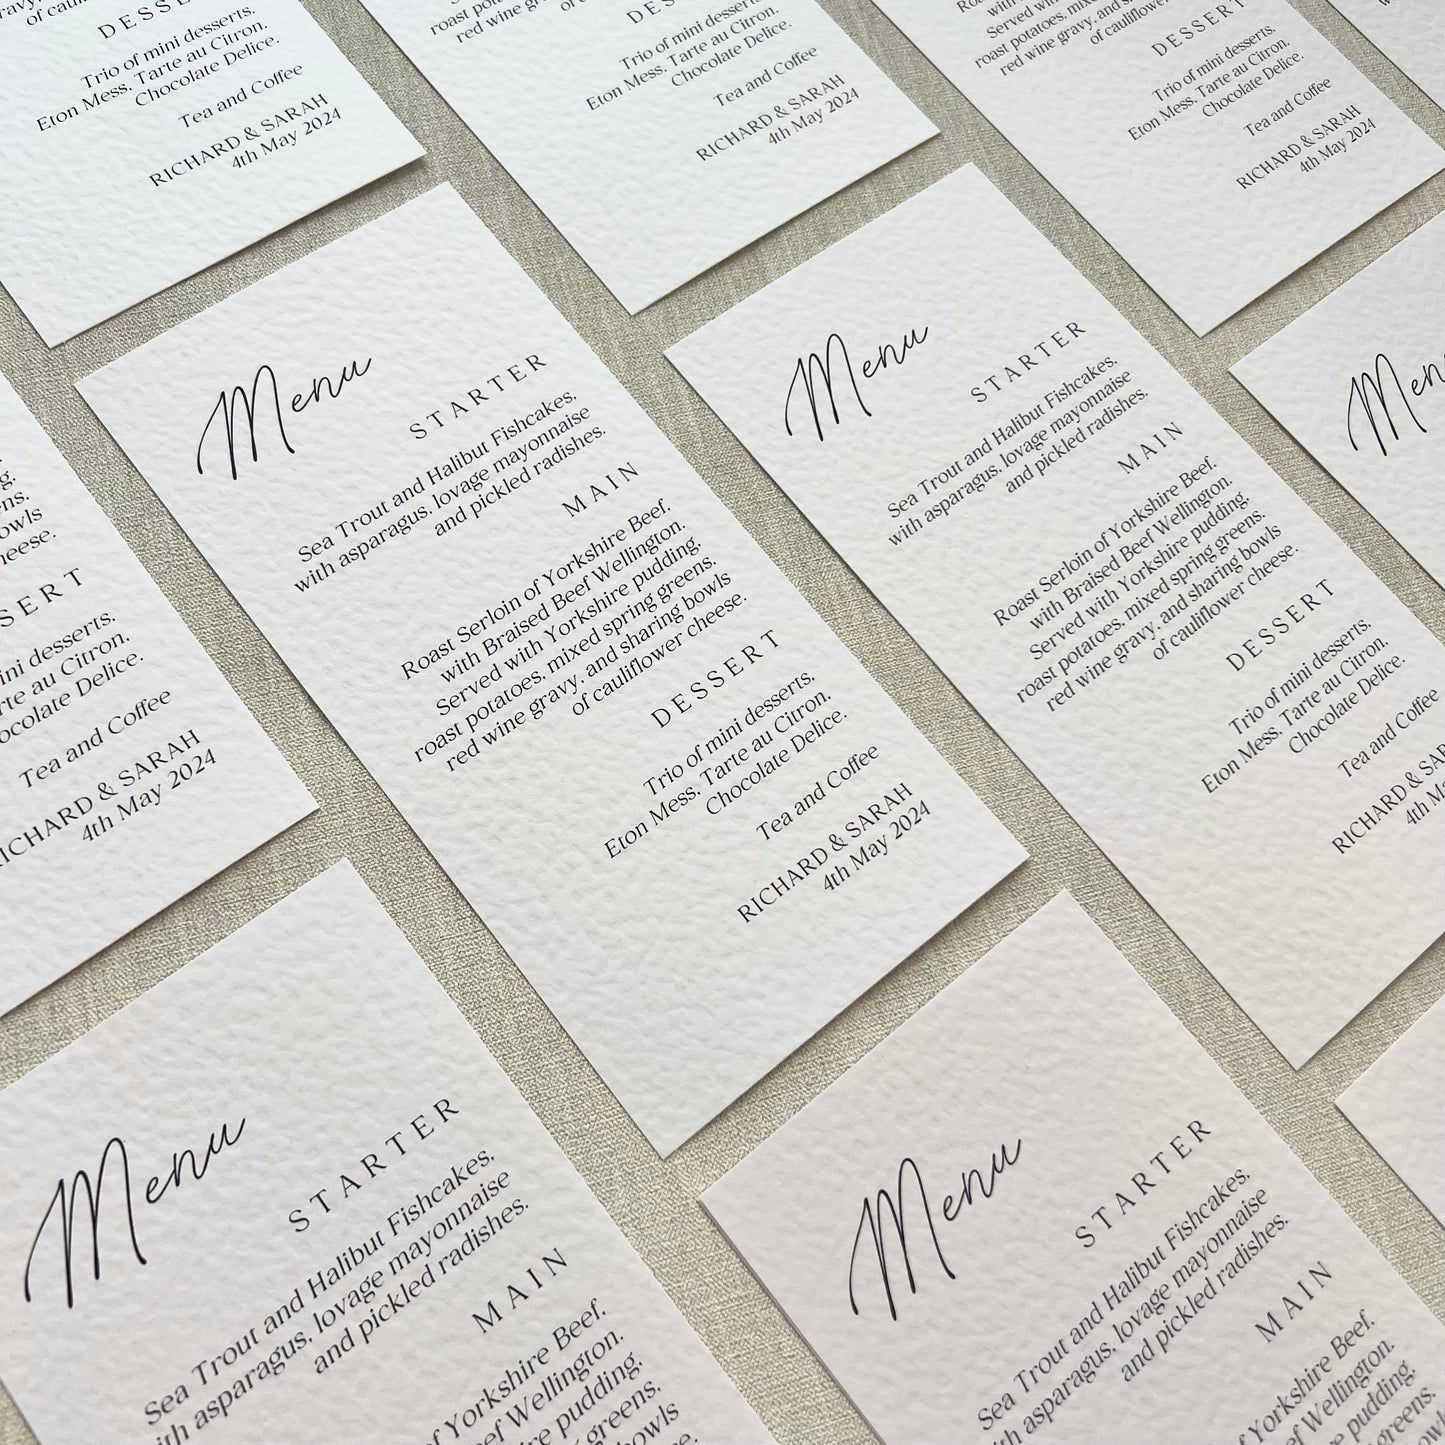 DESSERT
Trio of mini desserts.
Eton Mess. Tarte au Citron.
Chocolate Delice.
Tea and Coffee
RICHARD & SARAH
4th May 2024
roast potatoes,
red wine
DESSERT
Trio of mini desserts.
Eton Mess. Tarte au Citron.
Chocolate Delice.
Tea and Coffee
RICHARD & SARAH
4th May 2024
with
Served with Yorkshire
roast potatoes,
red wine gravy, and
of cauliflower
DESSERT
Trio of mini desserts.
Eton Mess. Tarte au Citron.
Chocolate Delice.
Tea and Coffee
RICHARD & SARAH
4th May 2024
desserts.
au Citron.
Delice.
Tea and Coffee
& SARAH
4th May 2024
Menu
STARTER
Sea Trout and Halibut Fishcakes,
with asparagus, lovage mayonnaise
and pickled radishes.
MAIN
Roast Serloin of Yorkshire Beef.
with Braised Beef Wellington.
Served with Yorkshire pudding,
roast potatoes, mixed spring greens,
red wine gravy, and sharing bowls
of cauliflower cheese.
DESSERT
Trio of mini desserts.
Eton Mess. Tarte au Citron.
Chocolate Delice.
Tea and Coffee
RICHARD & SARAH
4th May 2024
Menu
STARTER
Sea Trout and Halibut Fishcakes,
with asparagus, lovage mayonnaise
and pickled radishes.
MAIN
Roast Serloin of Yorkshire Beef.
with Braised Beef Wellington.
Served with Yorkshire pudding,
roast potatoes, mixed spring greens,
red wine gravy, and sharing bowls
of cauliflower cheese.
DESSERT
Trio of mini desserts.
Eton Mess. Tarte au Citron.
Chocolate Delice.
Tea and Coffee
RICHARD &
4th
Menu
STARTER
Sea Trout and Halibut Fishcakes,
asparagus, lovage mayonnaise
and pickled radishes.
MAIN
Yorkshire Beef.
Wellington.
pudding,
greens,
Menu
STARTER
Sea Trout and Halibut Fishcakes,
asparagus, lovage mayonnaise
and pickled radishes.
MAIN
Yorkshire Beef.
Wellington.
pudding,
greens,